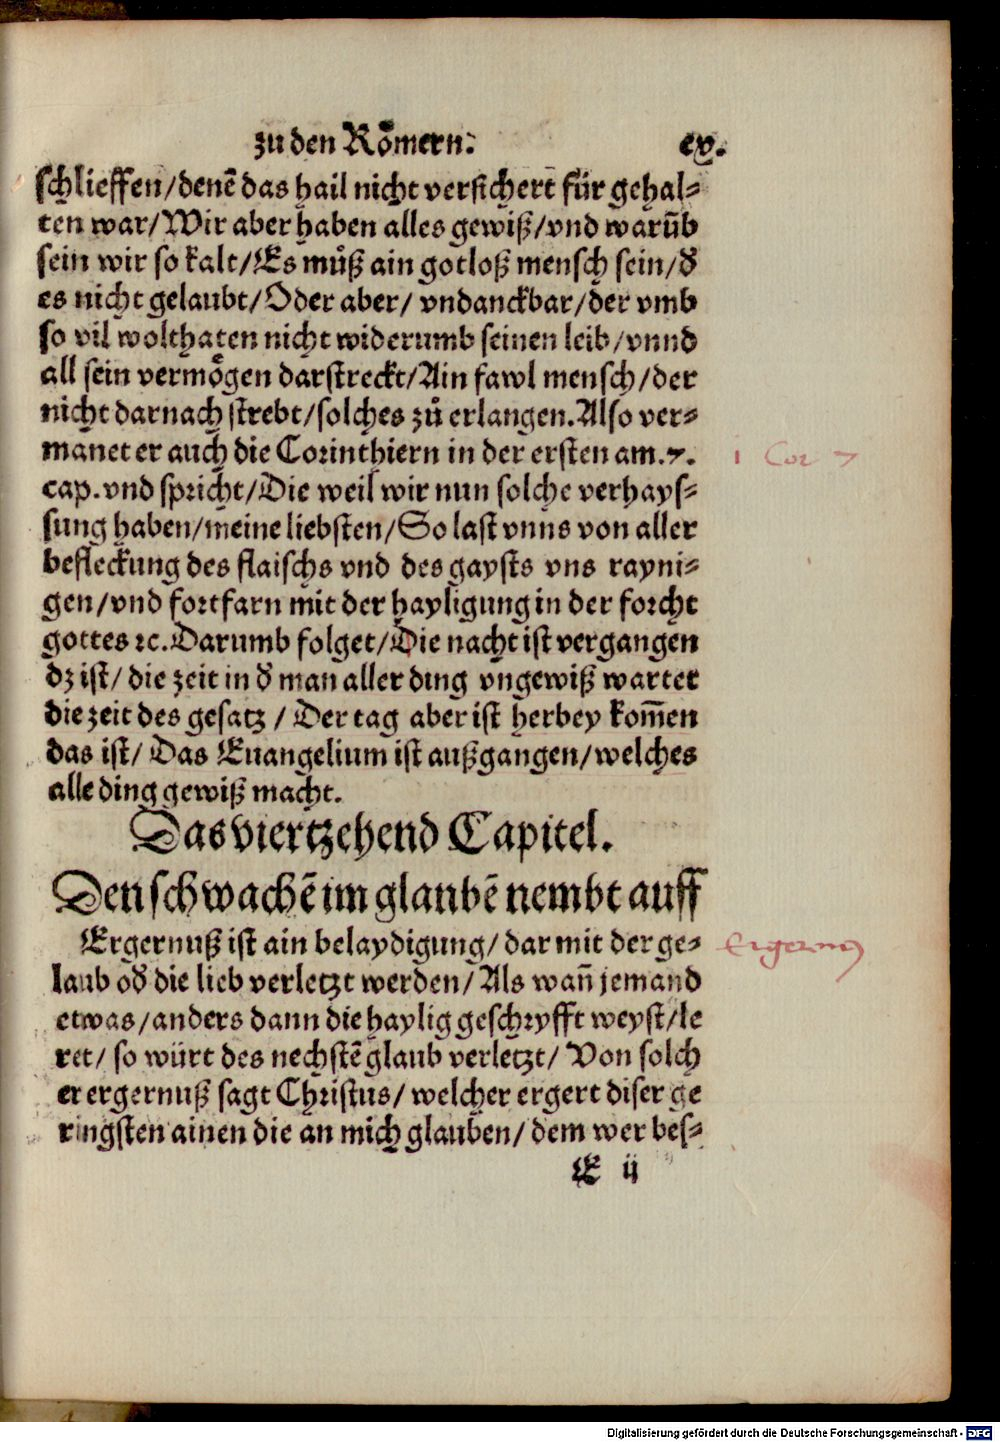 zu den Roͤmern. cx.
schlieffen/denē das hail nicht versichert für gehal⸗
ten war/Wir aber haben alles gewiß/vnd warūb
sein wir so kalt/Es muͦß ain gotloß mensch sein/d̕
es nicht gelaubt/Oder aber/ vndanckbar/der vmb
so vil wolthaten nicht widerumb seinen leib/vnnd
all sein vermoͤgen darstreckt/Ain fawl mensch/der
nicht darnach strebt/solches zuͦ erlangen.Also ver⸗
manet er auch die Corinthiern in der ersten am.7. 1 Cor 7
cap.vnd spricht/Die weil wir nun solche verhays⸗
sung haben/meine liebsten/So last vnns von aller
befleckung des flaischs vnd des gaysts vns rayni⸗
gen/vnd fortfarn mit der hayligung in der forcht
gottes ꝛc.Darumb folget/Die nacht ist vergangen
dz ist/ die zeit in d̕ man aller ding vngewiß wartet
die zeit des gesatz / Der tag aber ist herbey kom̄en
das ist/ Das Euangelium ist außgangen/welches
alle ding gewiß macht.
Das viertzehend Capitel.
Den schwachē im glaubē nembt auff
Ergernuß ist ain belaydigung/ dar mit der ge⸗ Ergernus
laub od̕ die lieb verletzt werden/ Als wan̄ jemand
etwas/anders dann die haylig geschryfft weyst/le
ret/ so würt des nechstē glaub verletzt/ Von solch
er ergernuß sagt Christus/ welcher ergert diser ge
ringsten ainen die an mich glauben/ dem wer bes⸗
E ij
Digitalisierung gefördert durch die Deutsche Forschungsgemeinschaft - DFG